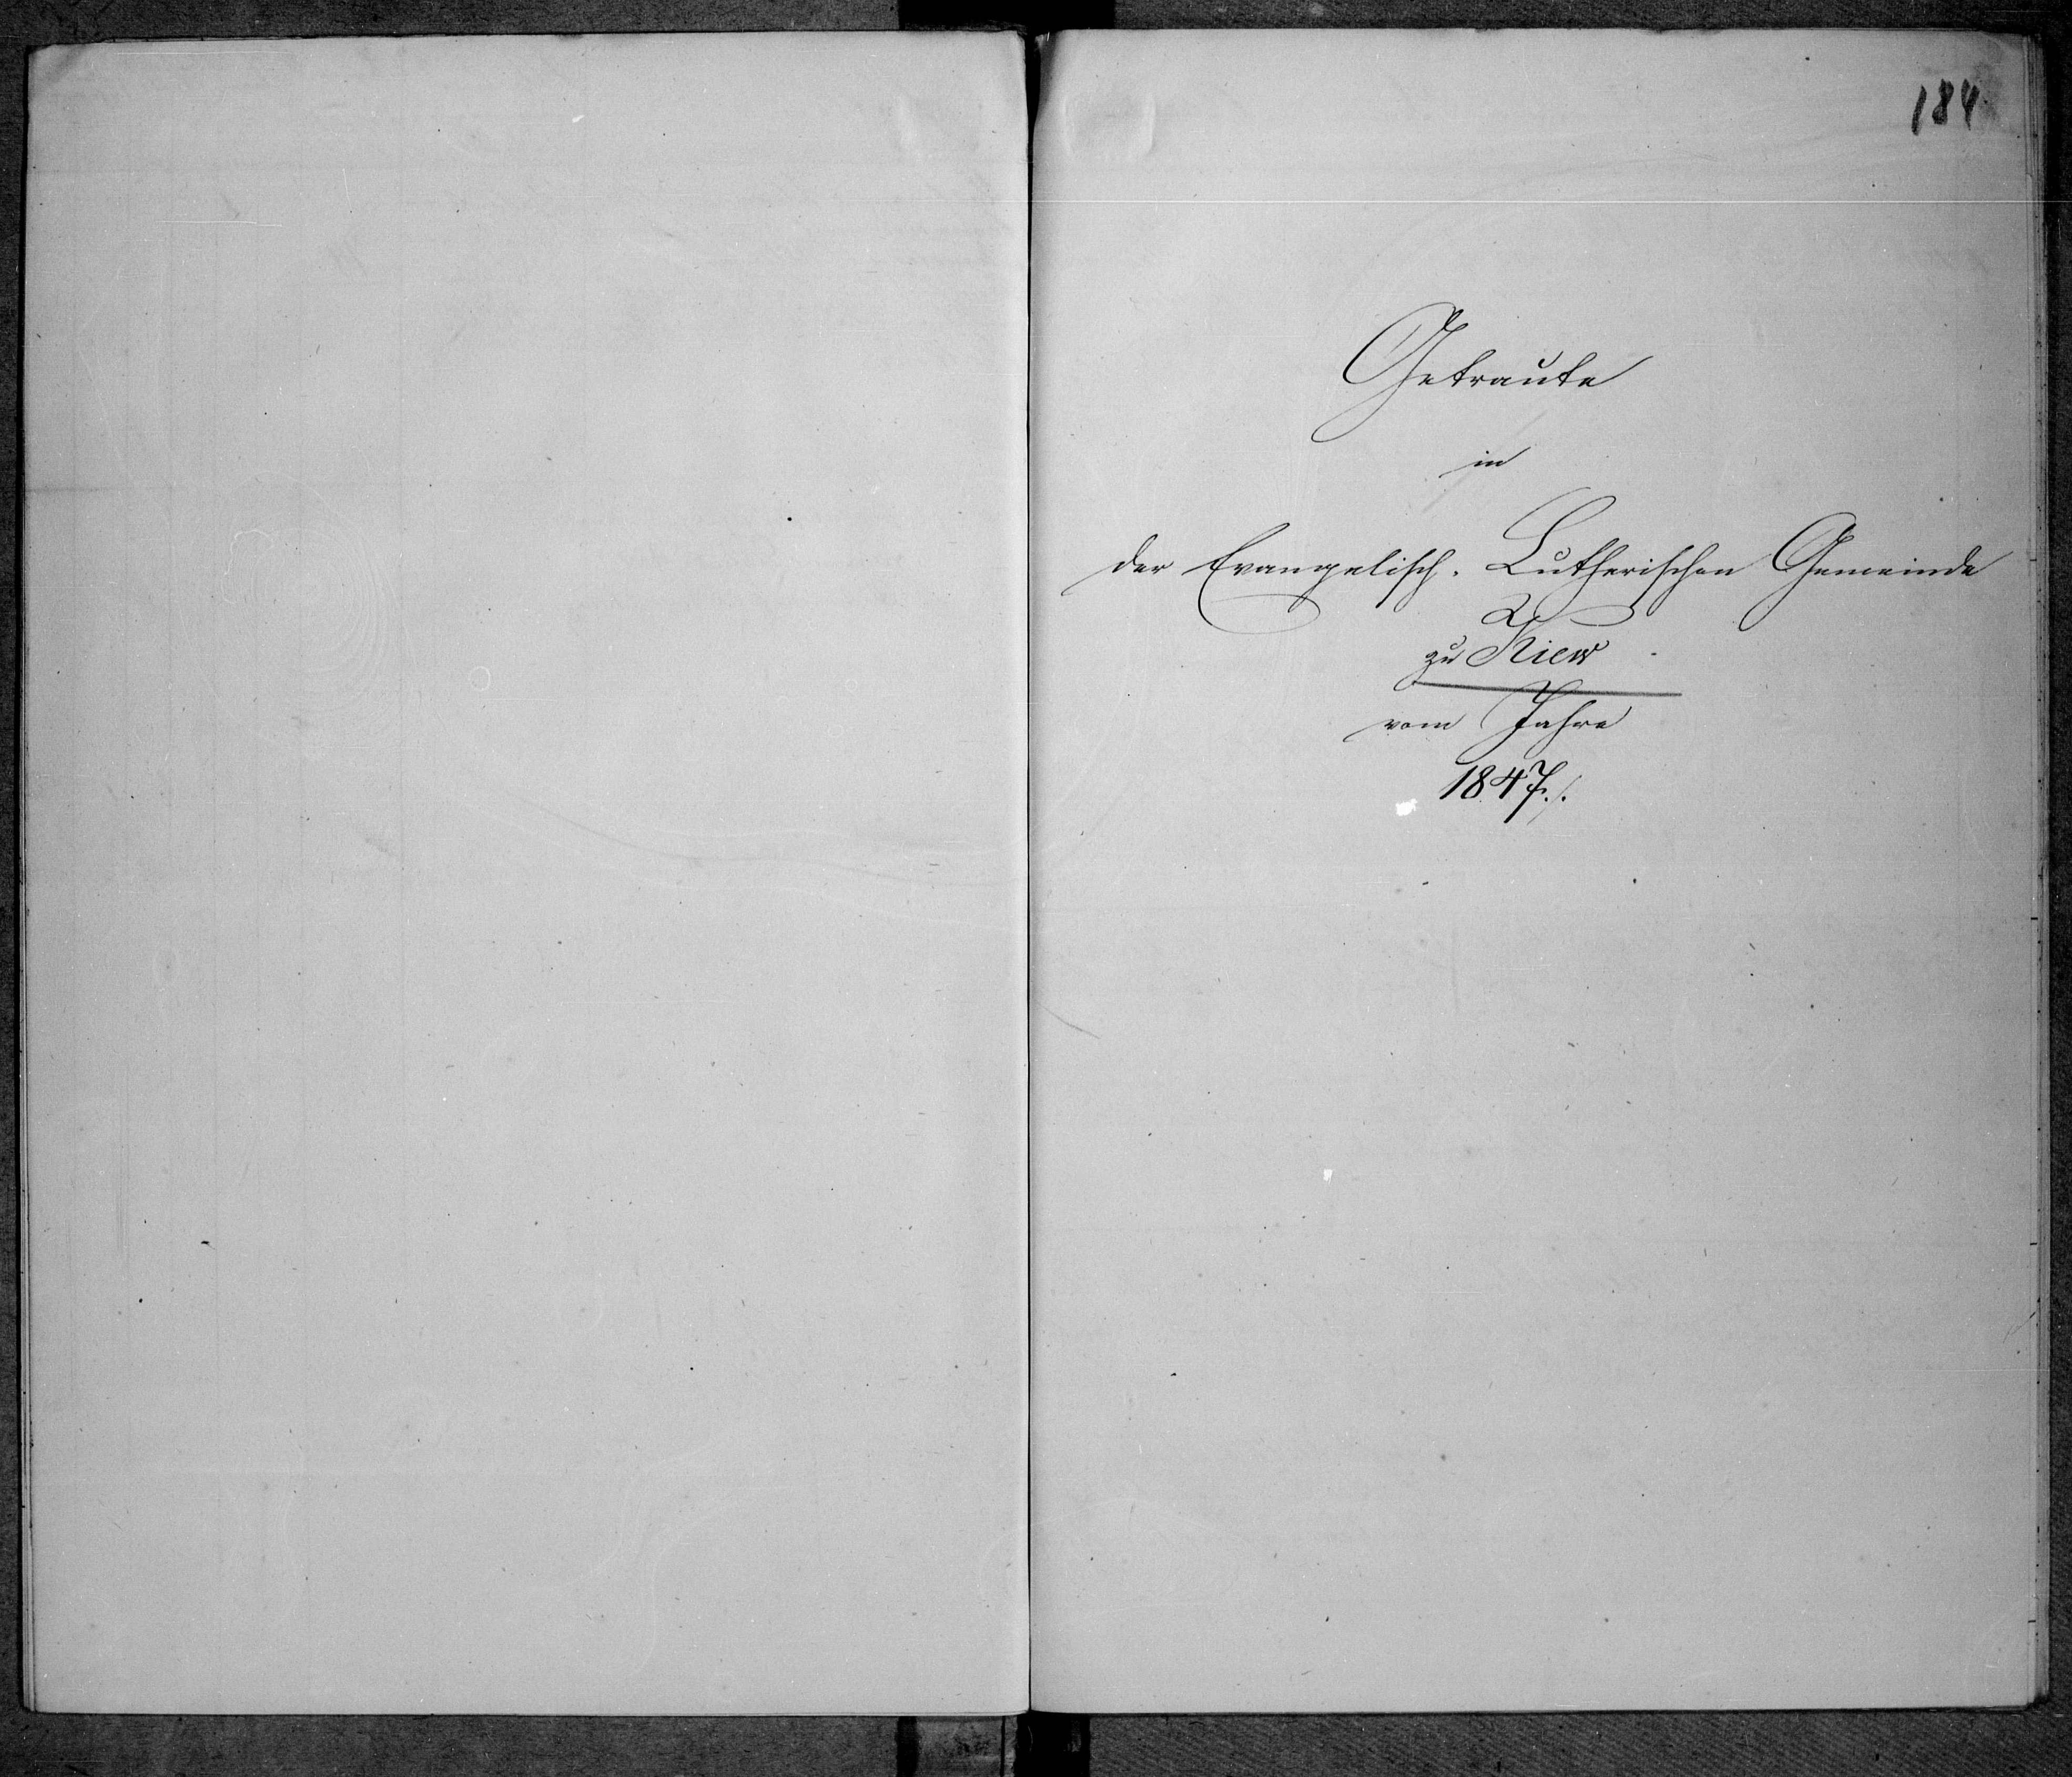 184
Getraute
in
der Evangelisch. Lutherischen Gemeinde
zu Kiew
vom Jahre
1847./.